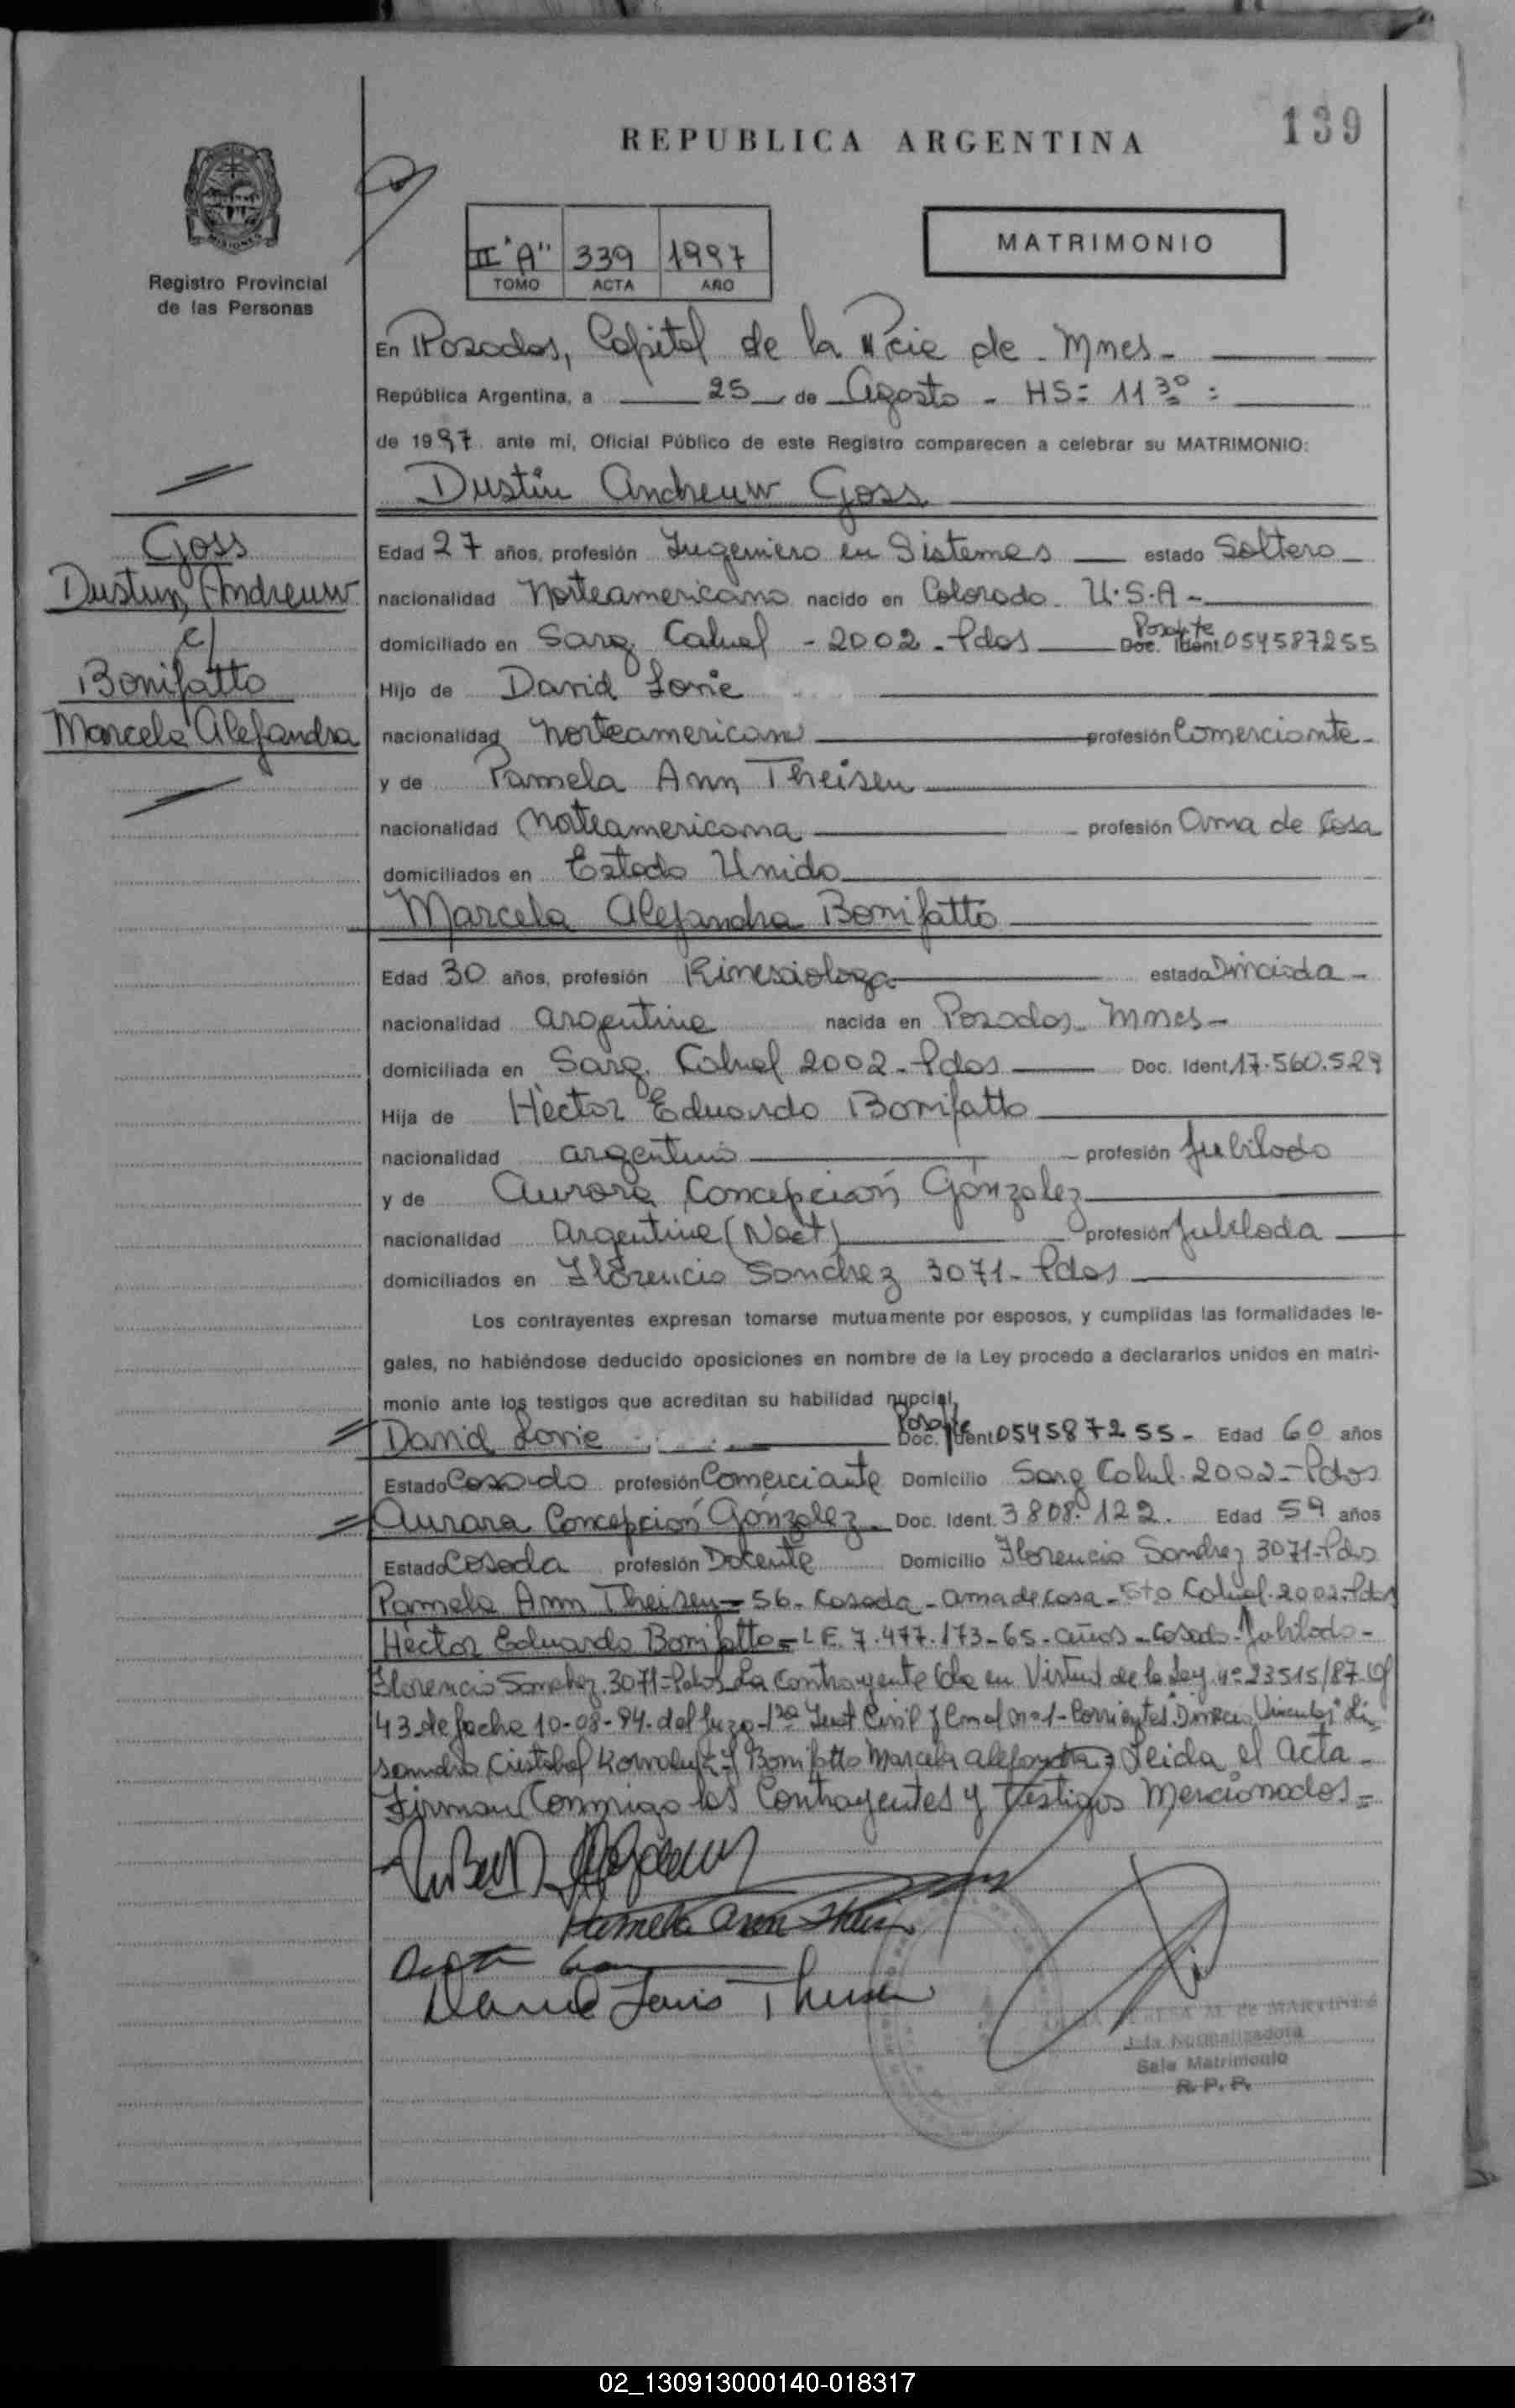 139
REPUBLICA ARGENTINA
MISIONES
Registro Provincial
de las Personas
II "A" 339 1997
TOMO ACTA AÑO
MATRIMONIO
En Posadas, Capital de la Pcia de Mnes-
República Argentina, a 25 de Agosto - HS= 11 30 =
de 1997 ante mi, Oficial Público de este Registro comparecen a celebrar su MATRIMONIO:
Dustin Andreuw Goss
Goss
Dustin Andreuw
c/
Bonifatto
Marcela Alejandra
Edad 27 años, profesión Ingeniero en Sistemas estado Soltero
nacionalidad Norteamericano nacido en Colorado - U.S.A -
domiciliado en Sarg. Cabral - 2002 - Pdas Doc. Ident. 054587255
Hijo de David Lorie
nacionalidad norteamericano profesión Comerciante -
y de Pamela Ann Theisen
nacionalidad Norteamericana profesión Ama de Casa
domiciliados en Estado Unido
Marcela Alejandra Bonifatto
Edad 30 años, profesión Kinesiologa estado Divorciada -
nacionalidad argentina nacida en Posadas - Mnes -
domiciliada en Sarg. Cabral 2002 - Pdas Doc. Ident. 17.560.529
Hija de Hèctor Eduardo Bonifatto
nacionalidad argentino profesión Jubilado
y de Aurora Concepción Gónzalez
nacionalidad Argentina (Nact) profesión Jubilada
domiciliados en Florencio Sanchez 3071 - Pdas
Los contrayentes expresan tomarse mutuamente por esposos, y cumplidas las formalidades le-
gales, no habiéndose deducido oposiciones en nombre de la Ley procedo a declararlos unidos en matri-
monio ante los testigos que acreditan su habilidad nupcial,
David Lorie Doc. Ident. 054587255 - Edad 60 años
Estado Casado profesión Comerciante Domicilio Sarg Cabral 2002 - Pdas
Aurora Concepción Gónzalez Doc. Ident. 3808.122. Edad 59 años
Estado Casada profesión Docente Domicilio Florencio Sanchez 3071 - Pdas
Pamela Ann Theisen = 56 - Casada - ama de casa - Sto Cabral 2002 - Pdas
Héctor Eduardo Bonifatto = L.E. 7.477.173 - 65 - años - Casado - Jubilado -
Florencio Sanchez 3071 - Pdas La Contrayente en Virtud de la Ley nº 23515/87
43 de fecha 10-08-94 del Juzg 1ra Inst Civil y Cmal nº 1 - Corrientes
Cristobal y Bonifatto Marcela Alejandra = Leida el Acta -
Firman Conmigo los Contrayentes y Testigos Mencionados =
Pamela Ann
Sala Matrimonio
R. P. P.
02_130913000140-018317